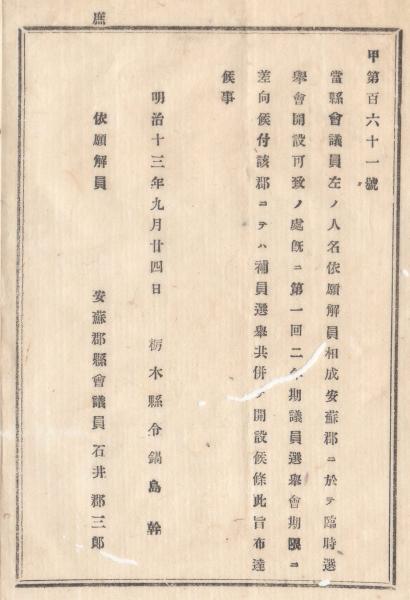 庶
甲第百六十一號
當縣會議員左ノ人名依願解員相成安蘇郡ニ於テ臨時選
擧會開設可致ノ處旣ニ第一回二年期議員選擧會期限ニ
差向候付該郡ニテハ補員選擧共併テ開設候條此旨布達
候事
明治十三年九月廿四日 栃木縣令鍋島幹
依願解員 安蘇郡縣會議員 石井郡三郎